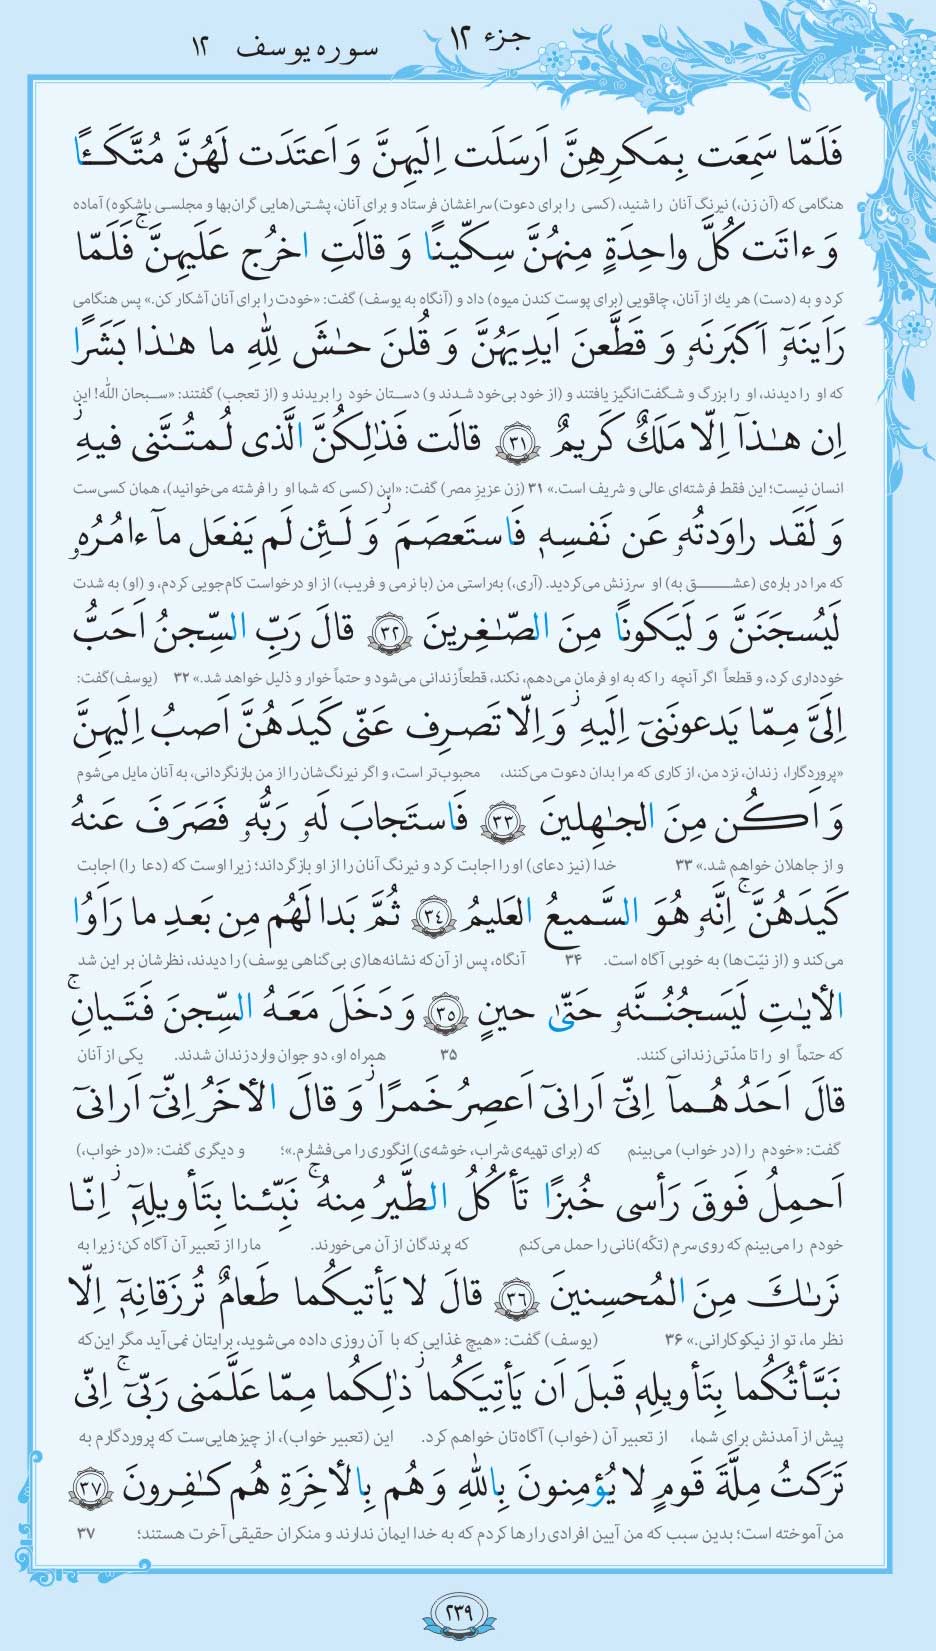 جزء ۱۲
سوره یوسف ۱۲
فَلَمّا سَمِعَت بِمَكرِهِنَّ اَرسَلَت اِلَيهِنَّ وَ اَعتَدَت لَهُنَّ مُتَّكَـًٔا
هنگامی که (آن زن،) نیرنگ آنان را شنید، (کسی را برای دعوت) سراغشان فرستاد و برای آنان، پشتی(هایی گران‌بها و مجلسی باشکوه) آماده
وَ ءاتَت كُلَّ واحِدَةٍ مِنهُنَّ سِكّينًا وَ قالَتِ اخرُج عَلَيهِنَّ ۚ فَلَمّا
کرد و به (دست) هر یك از آنان، چاقویی (برای پوست کندن میوه) داد و (آنگاه به یوسف) گفت: «خودت را برای آنان آشکار کن.» پس هنگامی
رَاَينَهٗٓ اَكبَرنَهٗ وَ قَطَّعنَ اَيدِيَهُنَّ وَ قُلنَ حٰشَ لِلّٰهِ ما هٰذا بَشَرًا
که او را دیدند، او را بزرگ و شگفت‌انگیز یافتند و (از خود بی‌خود شدند و) دستان خود را بریدند و (از تعجب) گفتند: «سبحان اللّٰه! این
اِن هٰذآ اِلّا مَلَكٌ كَريمٌ ﴿٣١﴾ قالَت فَذٰلِكُنَّ الَّذى لُمتُنَّنى فيهِ ز
انسان نیست؛ این فقط فرشته‌ای عالی و شریف است.» ۳۱ (زن عزیز مصر) گفت: «این (کسی که شما او را فرشته می‌خوانید)، همان کسی‌ست
وَ لَقَد راوَدتُهٗ عَن نَفسِهٖ فَاستَعصَمَ ز وَ لَئِن لَم يَفعَل مآ ءامُرُهٗ
که مرا در باره‌ی (عشـــق به) او سرزنش می‌کردید. (آری،) به‌راستی من (با نرمی و فریب،) از او درخواست کام‌جویی کردم، و (او) به شدت
لَيُسجَنَنَّ وَ لَيَكونًا مِنَ الصّٰغِرينَ ﴿٣٢﴾ قالَ رَبِّ السِّجنُ اَحَبُّ
خودداری کرد، و قطعاً اگر آنچه را که به او فرمان می‌دهم، نکند، قطعاً زندانی می‌شود و حتماً خوار و ذلیل خواهد شد.» ۳۲ (یوسف) گفت:
اِلَىَّ مِمّا يَدعونَنىٓ اِلَيهِ ز وَ اِلّا تَصرِف عَنّى كَيدَهُنَّ اَصبُ اِلَيهِنَّ
«پروردگارا، زندان، نزد من، از کاری که مرا بدان دعوت می‌کنند، محبوب‌تر است، و اگر نیرنگ‌شان را از من بازنگردانی، به آنان مایل می‌شوم
وَ اَكُن مِنَ الجٰهِلينَ ﴿٣٣﴾ فَاستَجابَ لَهٗ رَبُّهٗ فَصَرَفَ عَنهُ
و از جاهلان خواهم شد.» ۳۳ خدا (نیز دعای) او را اجابت کرد و نیرنگ آنان را از او بازگرداند؛ زیرا اوست که (دعا را) اجابت
كَيدَهُنَّ ۚ اِنَّهٗ هُوَ السَّميعُ العَليمُ ﴿٣٤﴾ ثُمَّ بَدا لَهُم مِن بَعدِ ما رَاَوُا
می‌کند و (از نیّت‌ها) به خوبی آگاه است. ۳۴ آنگاه، پس از آن‌که نشانه‌ها(ی بی‌گناهی یوسف) را دیدند، نظرشان بر این شد
الأيٰتِ لَيَسجُنُنَّهٗ حَتّىٰ حينٍ ﴿٣٥﴾ وَ دَخَلَ مَعَهُ السِّجنَ فَتَيانِ ۚ
که حتماً او را تا مدّتی زندانی کنند. ۳۵ همراه او، دو جوان وارد زندان شدند. یکی از آنان
قالَ اَحَدُهُمآ اِنّىٓ اَرانىٓ اَعصِرُ خَمرًا ز وَ قالَ الأخَرُ اِنّىٓ اَرانىٓ
گفت: «خودم را (در خواب) می‌بینم که (برای تهیه‌ی شراب، خوشه‌ی) انگوری را می‌فشارم.»؛ و دیگری گفت: «(در خواب،)
اَحمِلُ فَوقَ رَأسى خُبزًا تَأكُلُ الطَّيرُ مِنهُ ۚ نَبِّئنا بِتَأويلِهٖٓ ز اِنّا
خودم را می‌بینم که روی سرم (تکّه) نانی را حمل می‌کنم که پرندگان از آن می‌خورند. ما را از تعبیر آن آگاه کن؛ زیرا به
نَرٰىكَ مِنَ المُحسِنينَ ﴿٣٦﴾ قالَ لا يَأتيكُما طَعامٌ تُرزَقانِهٖٓ اِلّا
نظر ما، تو از نیکوکارانی.» ۳۶ (یوسف) گفت: «هیچ غذایی که با آن روزی داده می‌شوید، برایتان نمی‌آید مگر این‌که
نَبَّأتُكُما بِتَأويلِهٖ قَبلَ اَن يَأتِيَكُما ز ذٰلِكُما مِمّا عَلَّمَنى رَبّىٓ ۚ اِنّى
پیش از آمدنش برای شما، از تعبیر آن (خواب) آگاه‌تان خواهم کرد. این (تعبیر خواب)، از چیزهایی‌ست که پروردگارم به
تَرَكتُ مِلَّةَ قَومٍ لا يُؤمِنونَ بِاللّٰهِ وَ هُم بِالأخِرَةِ هُم كٰفِرونَ ﴿٣٧﴾
من آموخته است؛ بدین سبب که من آیین افرادی را رها کردم که به خدا ایمان ندارند و منکران حقیقی آخرت هستند؛ ۳۷
۲۳۹